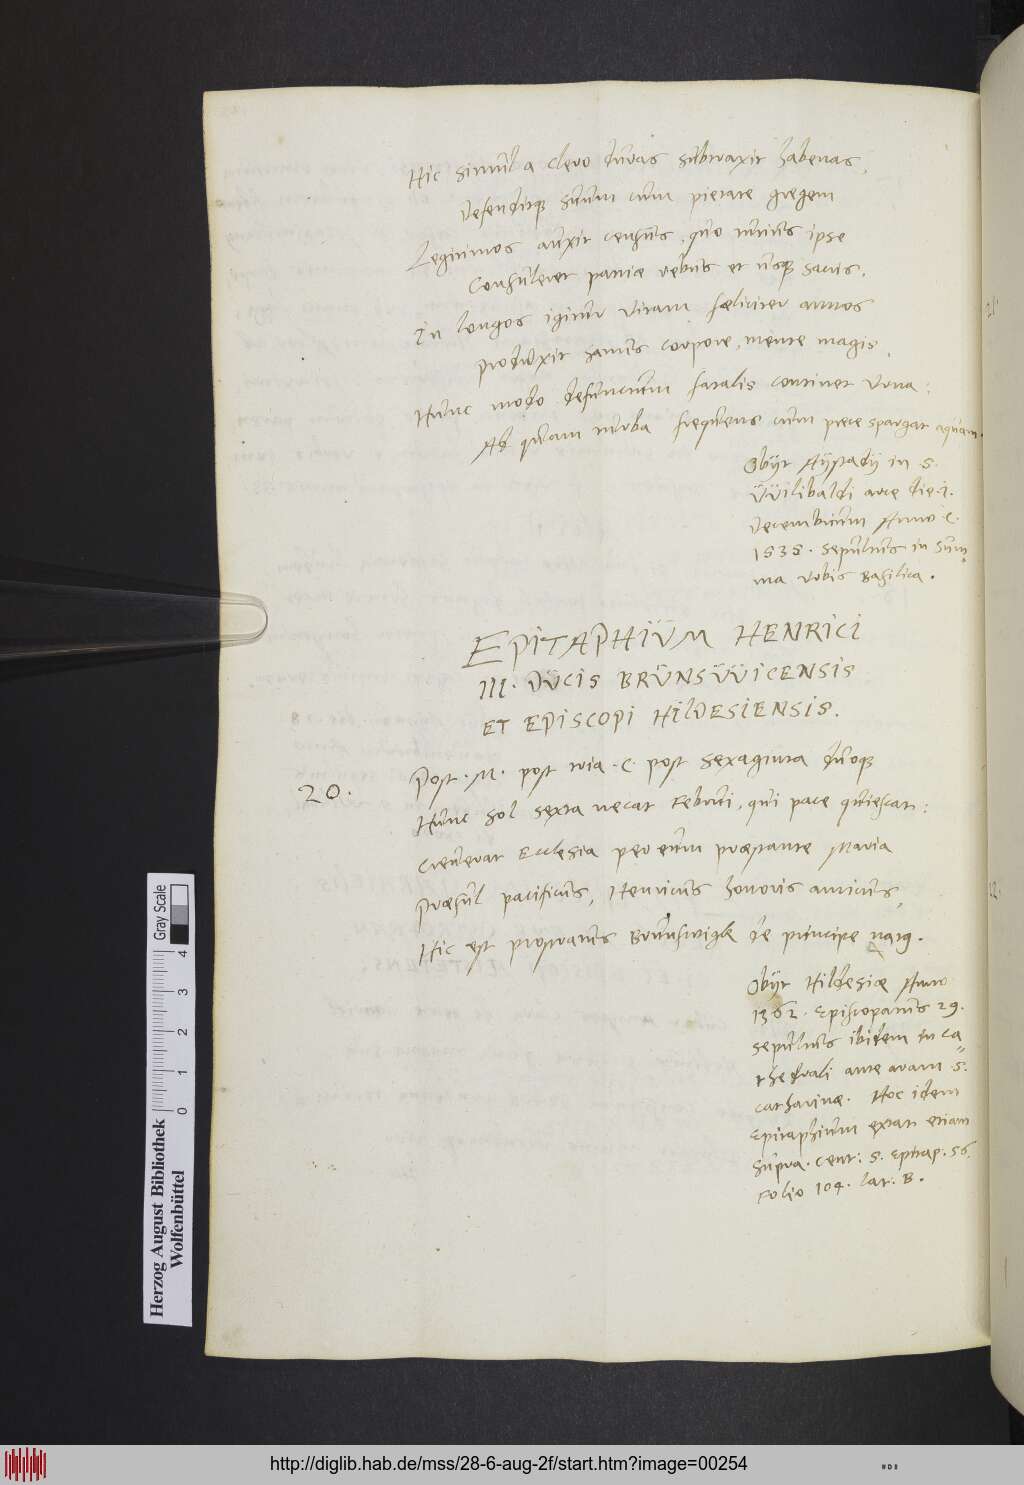 Hic simul a clero duras subtraxit habenas,
Defenditq̃ suum cum pietate gregem
Legitimos auxit census, quo tutius ipse
Consuleret patriæ rebus et usq̃ sacris.
In longos igitur vitam fæliciter annos
produxit sanus corpore, mente magis,
Hunc modo defunctum fatalis continet Urna:
Ad quam turba frequens cum prece spargat aquam.
Obijt Aystadij in S.
Vüilibaldi arce die.1.
Decembrium Anno C.
1535. Sepultus in Sum=
ma Urbis Basilica.
EPITAPHIŬM HENRICI
III. DŬCIS BRŬNSŬŬICENSIS
ET EPISCOPI HILDESIENSIS.
20.
Post. M. post tria. C. post sexaginta duoq̃
Hunc sol sexta necat Februi, qui pace quiescat:
Creuerat Ecclesia per eum præstante Maria
Præsul pacificus, Henricus honoris amicus,
Hic est prostratus Brunswigk de principe nat9.
Obijt Hildesiæ Anno
1362. Episcopatus 29.
Sepultus ibidem in Ca=
thedrali ante aram S.
Catharinæ. Hoc idem
Epitaphium extat etiam
supra. Cent: 5. Epitap. 56.
Folio 104. lat. B.
Herzog August Bibliothek
Wolfenbüttel
0 1 2 3 4
Gray Scale
http://diglib.hab.de/mss/28-6-aug-2f/start.htm?image=00254